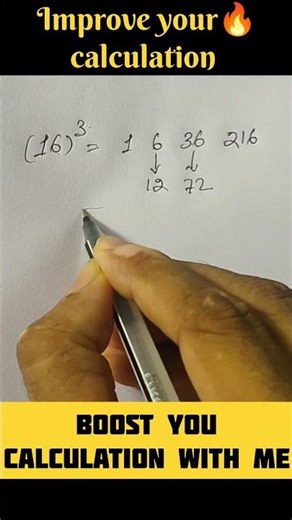 Improve your🔥
calculation
(16)³ = 1 6 36 216
↓ ↓
12 72
BOOST YOU
CALCULATION WITH ME